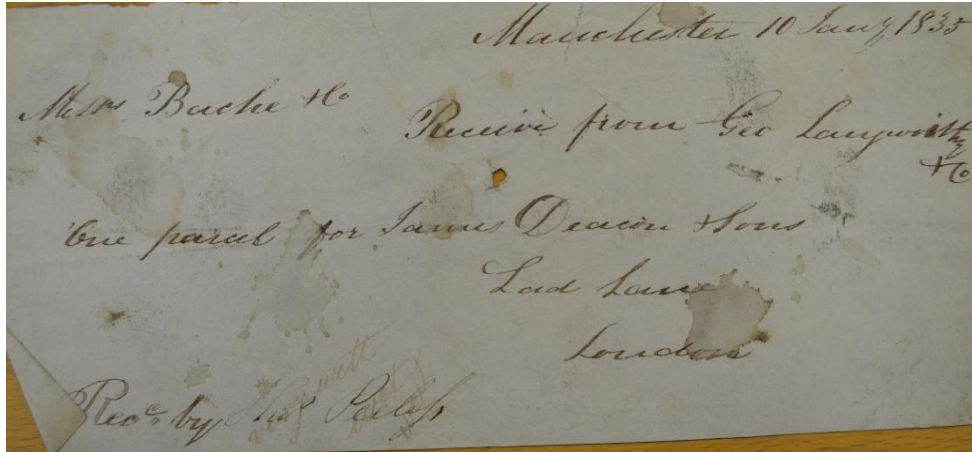 Manchester 10 Jany 1835
Messrs Bache & Co
Receive from Geo Langworthy
& Co
One parcel for James Deacon & Sons
Lad Lane
London
Recd by Thos